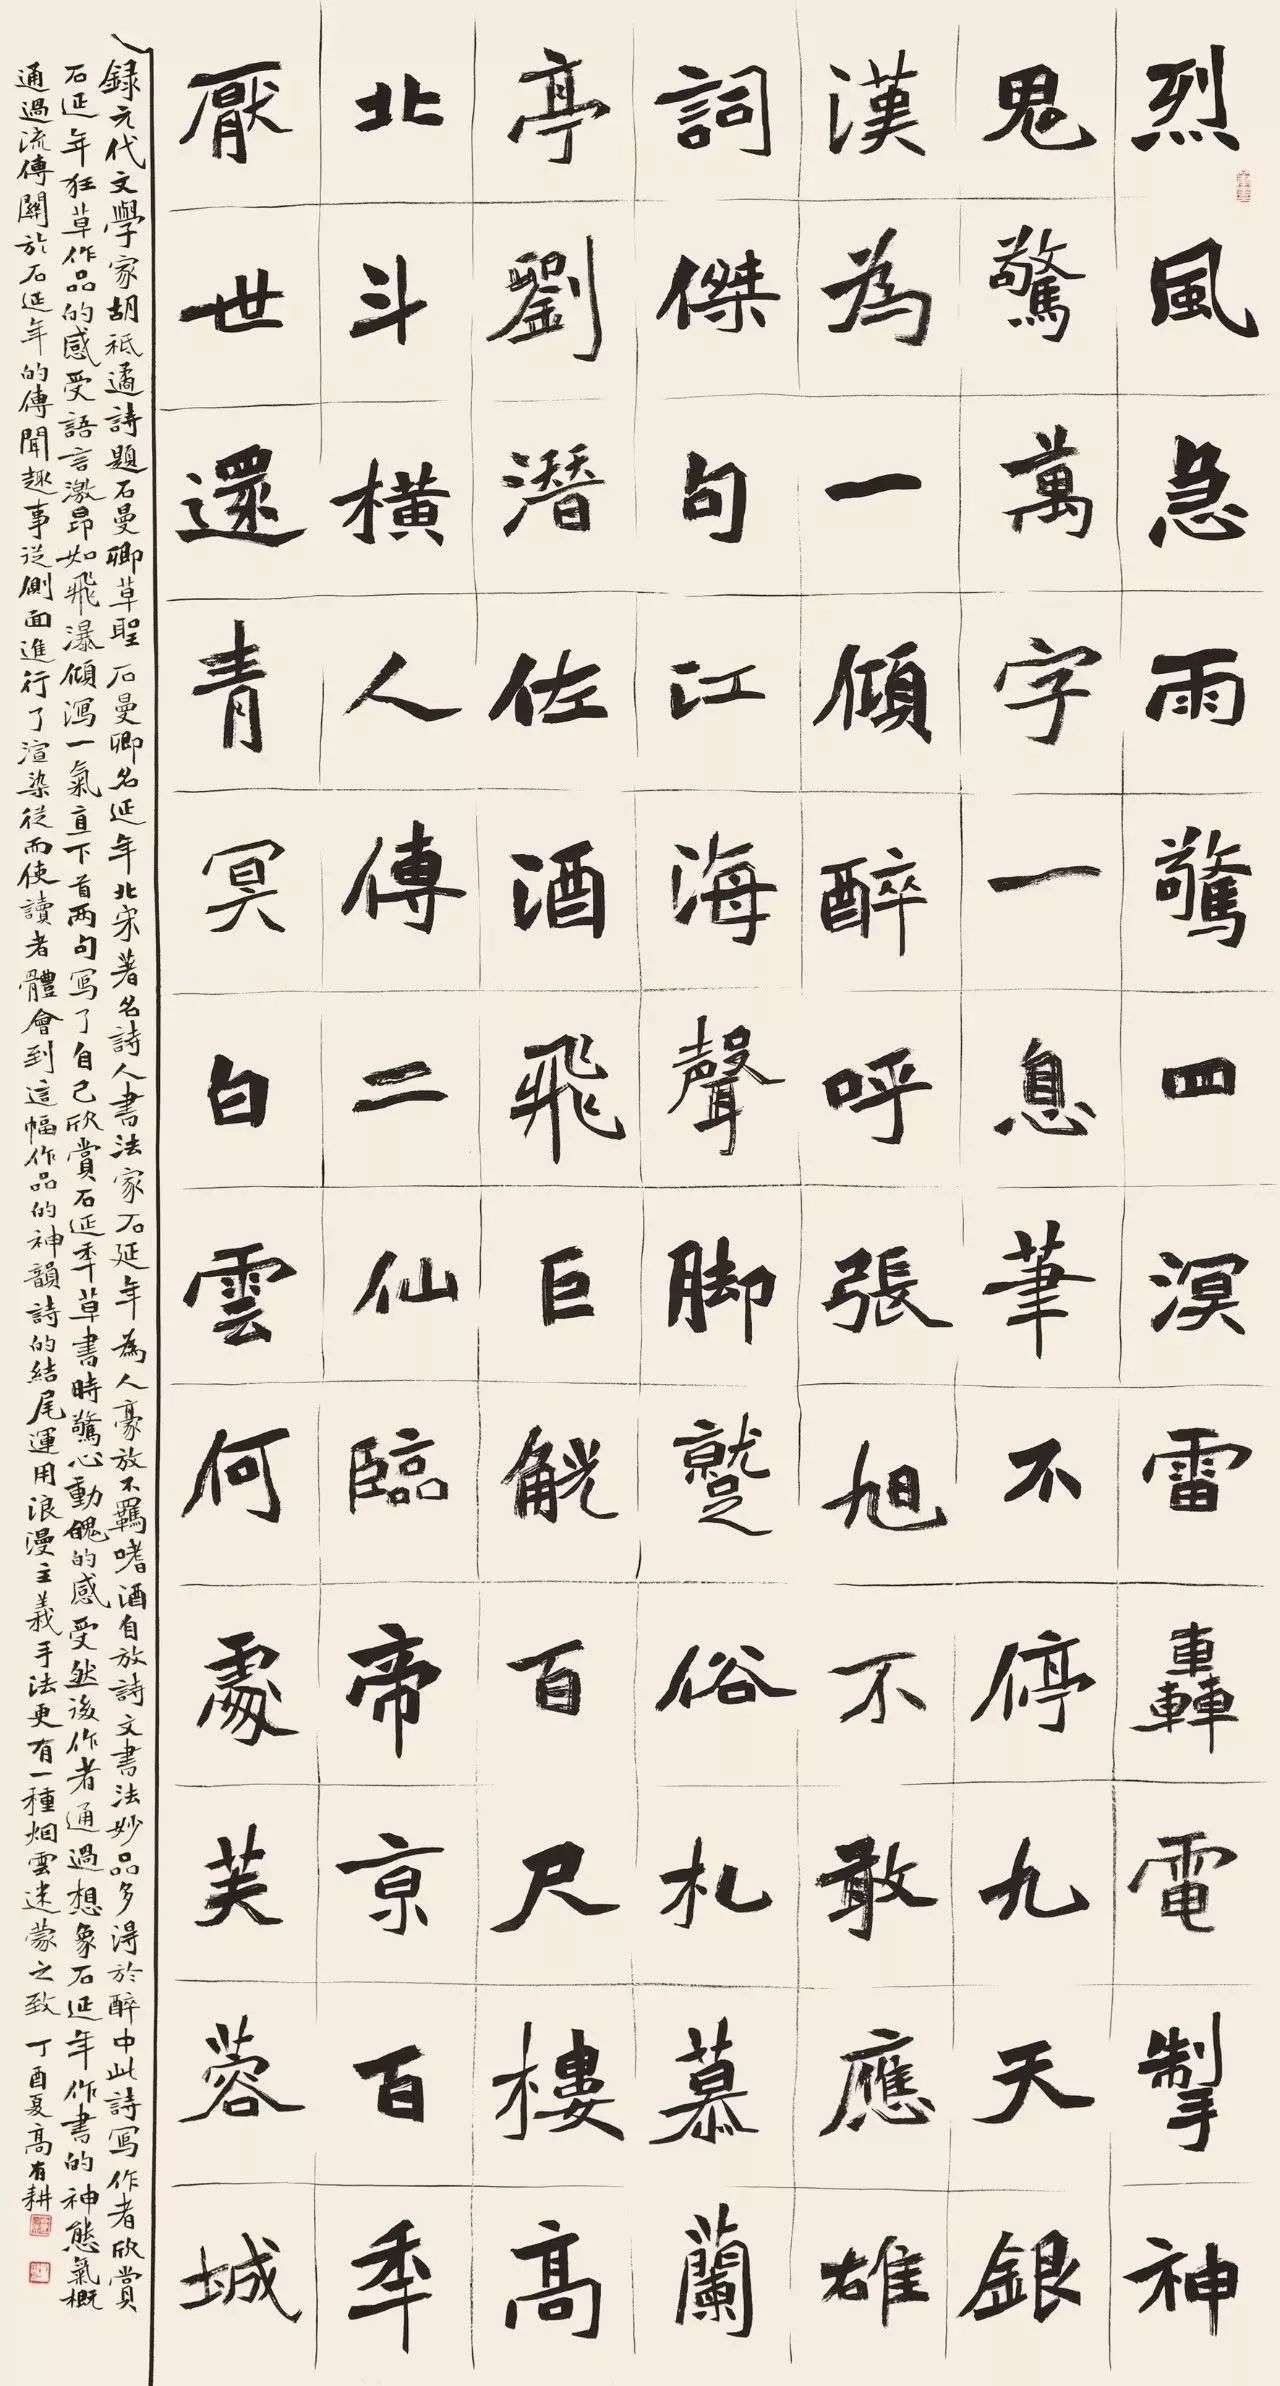 烈風急雨驚四溟雷轟電掣神
鬼驚萬字一息筆不停九天銀
漢為一傾醉呼張旭不敢應雄
詞傑句江海聲脚蹵俗札慕蘭
亭劉潛佐酒飛巨觥百尺樓高
北斗橫人傳二仙臨帝京百年
厭世還青冥白雲何處芙蓉城
録元代文學家胡祗遹詩題石曼卿草聖石曼卿名延年北宋著名詩人書法家石延年為人豪放不羈嗜酒自放詩文書法妙品多得於醉中此詩寫作者欣賞
石延年狂草作品的感受語言激昂如飛瀑傾瀉一氣直下首两句寫了自己欣賞石延年草書時驚心動魄的感受然後作者通過想象石延年作書的神態氣概
通過流傳關於石延年的傳聞趣事從側面進行了渲染從而使讀者體會到這幅作品的神韻詩的結尾運用浪漫主義手法更有一種烟雲迷蒙之致丁酉夏高有耕